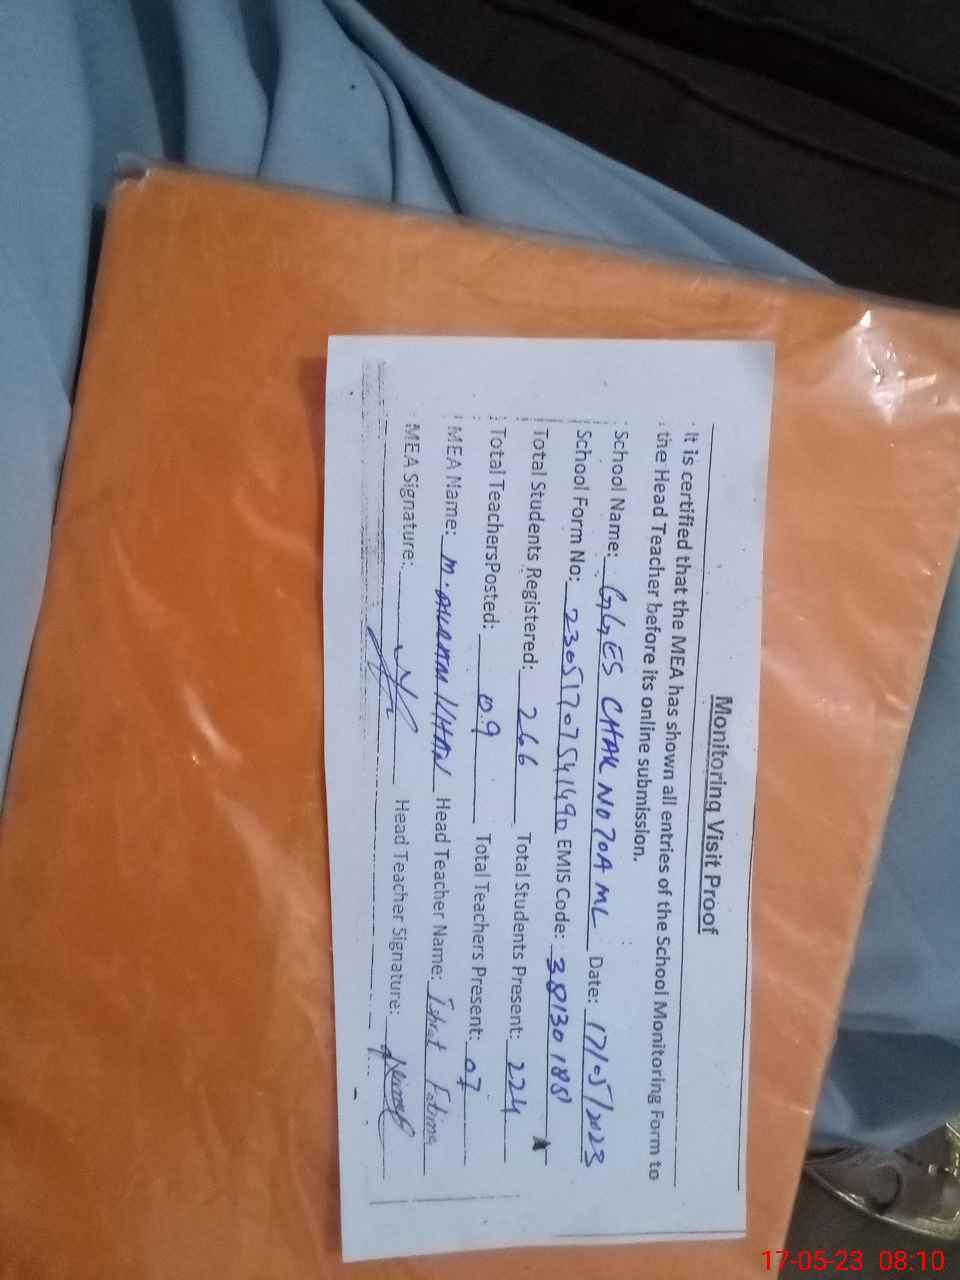 Monitoring Visit Proof
It is certified that the MEA has shown all entries of the School Monitoring Form to
the Head Teacher before its online submission.
School Name: GGES CHAK NO 70A ML Date: 17/05/2023
School Form No: 23051707541490 EMIS Code: 38130188
Total Students Registered: 266 Total Students Present: 224
Total TeachersPosted: 09 Total Teachers Present: 07
MEA Name: M. KHAN Head Teacher Name: Ishrat Fatima
MEA Signature: Head Teacher Signature:
17-05-23 08:10